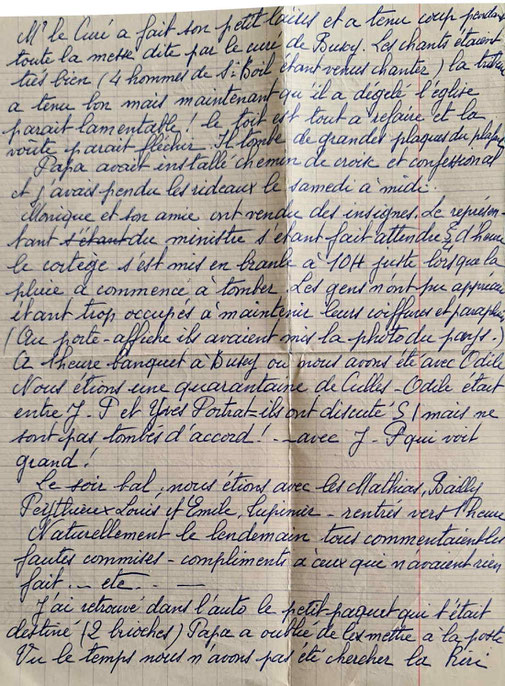 Mr le Curé a fait son petit laïus et a tenu coup pendant
toute la messe dite par le curé de Buxy. Les chants étaient
très bien (4 hommes de St Boil étant venus chanter) la
a tenu bon mais maintenant qu'il a dégelé l'église
parait lamentable! le toit est tout a refaire et la
voûte parait fléchir. Il tombe de grandes plaques du plafond
Papa avait installé chemin de croix et confessional
et j'avais pendu les rideaux le samedi à midi.
Monique et son amie ont vendu des insignes. Le représen-
tant s'étant du ministre s'étant fait attendre d'heure
le cortège s'est mis en branle à 10H juste lorsque la
pluie a commencé à tomber. Les gens n'ont pu apprécier
étant trop occupés à maintenir leurs coiffures et parapluies
(Au porte-affiche ils avaient mis la photo du pays.)
A 1 heure banquet à Buxy où nous avons été avec Odile
Nous étions une quarantaine de Culles - Odile était
entre J-P et Yves Portrat - ils ont discuté mais ne
sont pas tombés d'accord! - avec J-P qui voit
grand!
Le soir bal, nous étions avec les Mathias, Bailly
Louis d'Emile, - rentrés vers 1 heure
Naturellement le lendemain tous commentaient les
fautes commises - compliments à ceux qui n'avaient rien
fait ... etc ... —
J'ai retrouvé dans l'auto le petit-paquet qui t'était
destiné (2 brioches) Papa a oublié de les mettre a la poste
Vu le temps nous n'avons pas été chercher la Riri